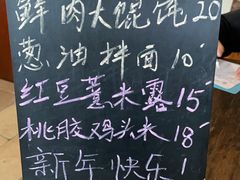 鲜肉大馄饨20
葱油拌面10
红豆薏米露15
桃胶鸡头米18
新年快乐!